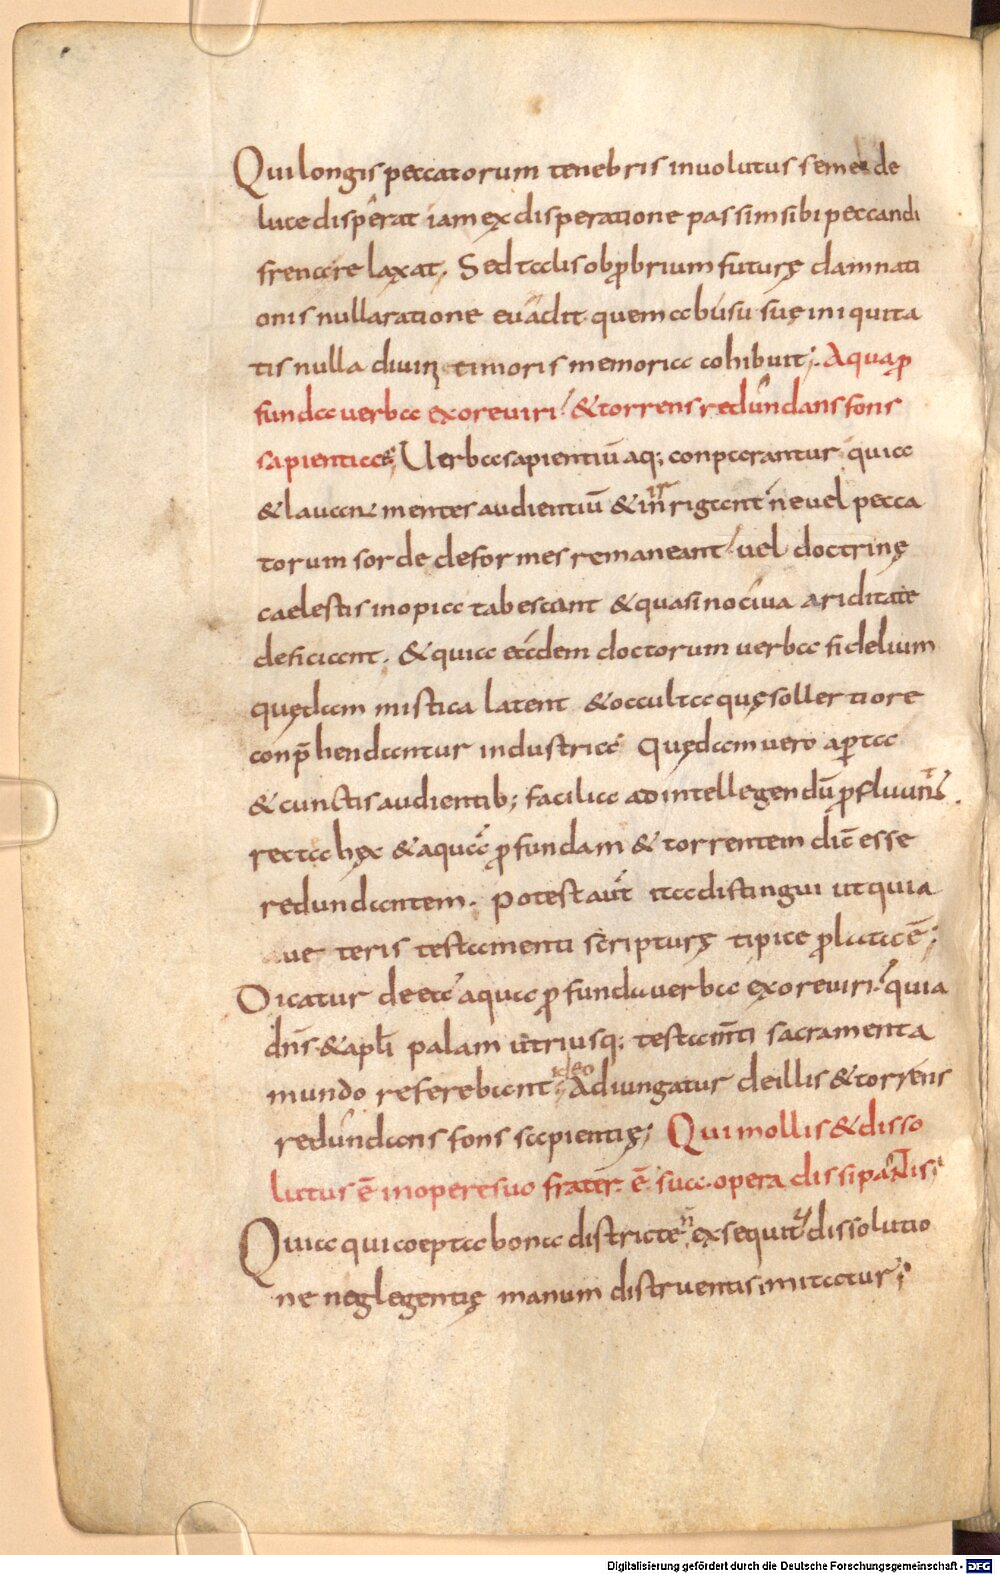 Qui longis peccatorum tenebris inuolutus semel de
luce disperat iam ex disperatione passim sibi peccandi
frena relaxat. Sed talis obprobrium futurę damnati
onis nulla ratione euadit quem ab usu suę iniquita
tis nulla diuini timoris memoria cohibuit; Aqua p̄
funda uerba ex ore uiri & torrens redundans fons
sapientiae; Uerba sapientiū aq; conparantur quia
& lauant mentes audientiū & inrigant ne uel pecca
torum sorde deformes remaneant uel doctrinę
caelestis inopia tabescant & quasi nociua ariditate
deficiant. & quia eadem doctorum uerba fidelium
quędam mistica latent & occulta quę sollertiore
conp̄hendantur industria Quędam uero aperta
& cunctis audientib; facilia ad intellegendū p̄fluunt
recta hęc & aquā p̄fundam & torrentem dic̄ esse
redundantem. Potest aut̄ ita distingui ut quia
ueteris testamenti scripturę tipice p̄lata ē;
Dicatur de ea aqua p̄funda uerba ex ore uiri. quia
dn̄s & apl̄i palam utriusq; testam̄ti sacramenta
mundo referebant ideo Adiungatur de illis & torrens
redundans fons sapientię; Qui mollis & disso
lutus ē in opere suo frater ē sua opera dissipantis;
Quia qui coepta bona districte n̄ exsequitur dissolutio
ne neglegentię manum distruentis imitatur;
Digitalisierung gefördert durch die Deutsche Forschungsgemeinschaft - DFG